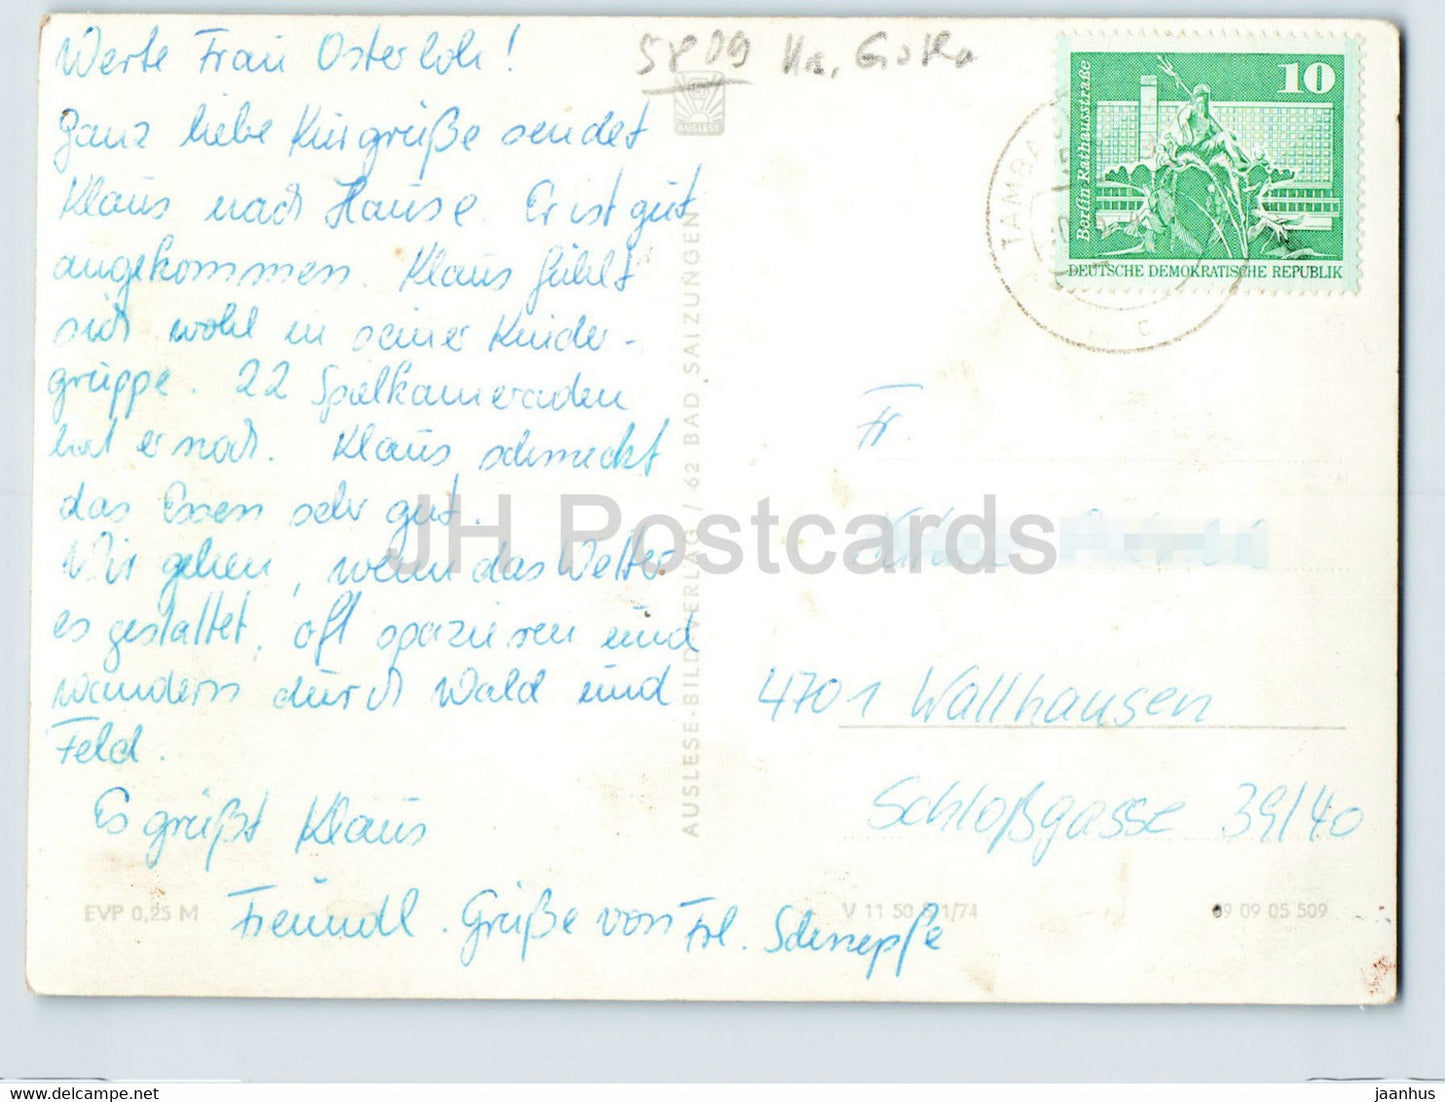 Werte Frau Osterloh!
Ganz liebe Kurgrüße sendet
Klaus nach Hause. Er ist gut
angekommen Klaus fühlt
sich wohl in seiner Kinder-
gruppe. 22 Spielkameraden
hat er noch. Klaus schmeckt
das Essen sehr gut.
Wir gehen, wenn das Wetter
es gestattet, oft spazieren und
wandern durch Wald und
Feld.
Es grüßt Klaus
Freundl. Grüße von Frl. Schnepfe
EVP 0,25 M
5809 Kr. Gotha
AUSLESE
AUSLESE-BILD-VERLAG / 62 BAD SALZUNGEN
10
Berlin Rathausstraße
DEUTSCHE DEMOKRATISCHE REPUBLIK
TAMBA
c
Fr.
4701 Wallhausen
Schloßgasse 39/40
V 11 50 1/74
09 09 05 509
JH Postcards
hippostcard.com
jaanhus